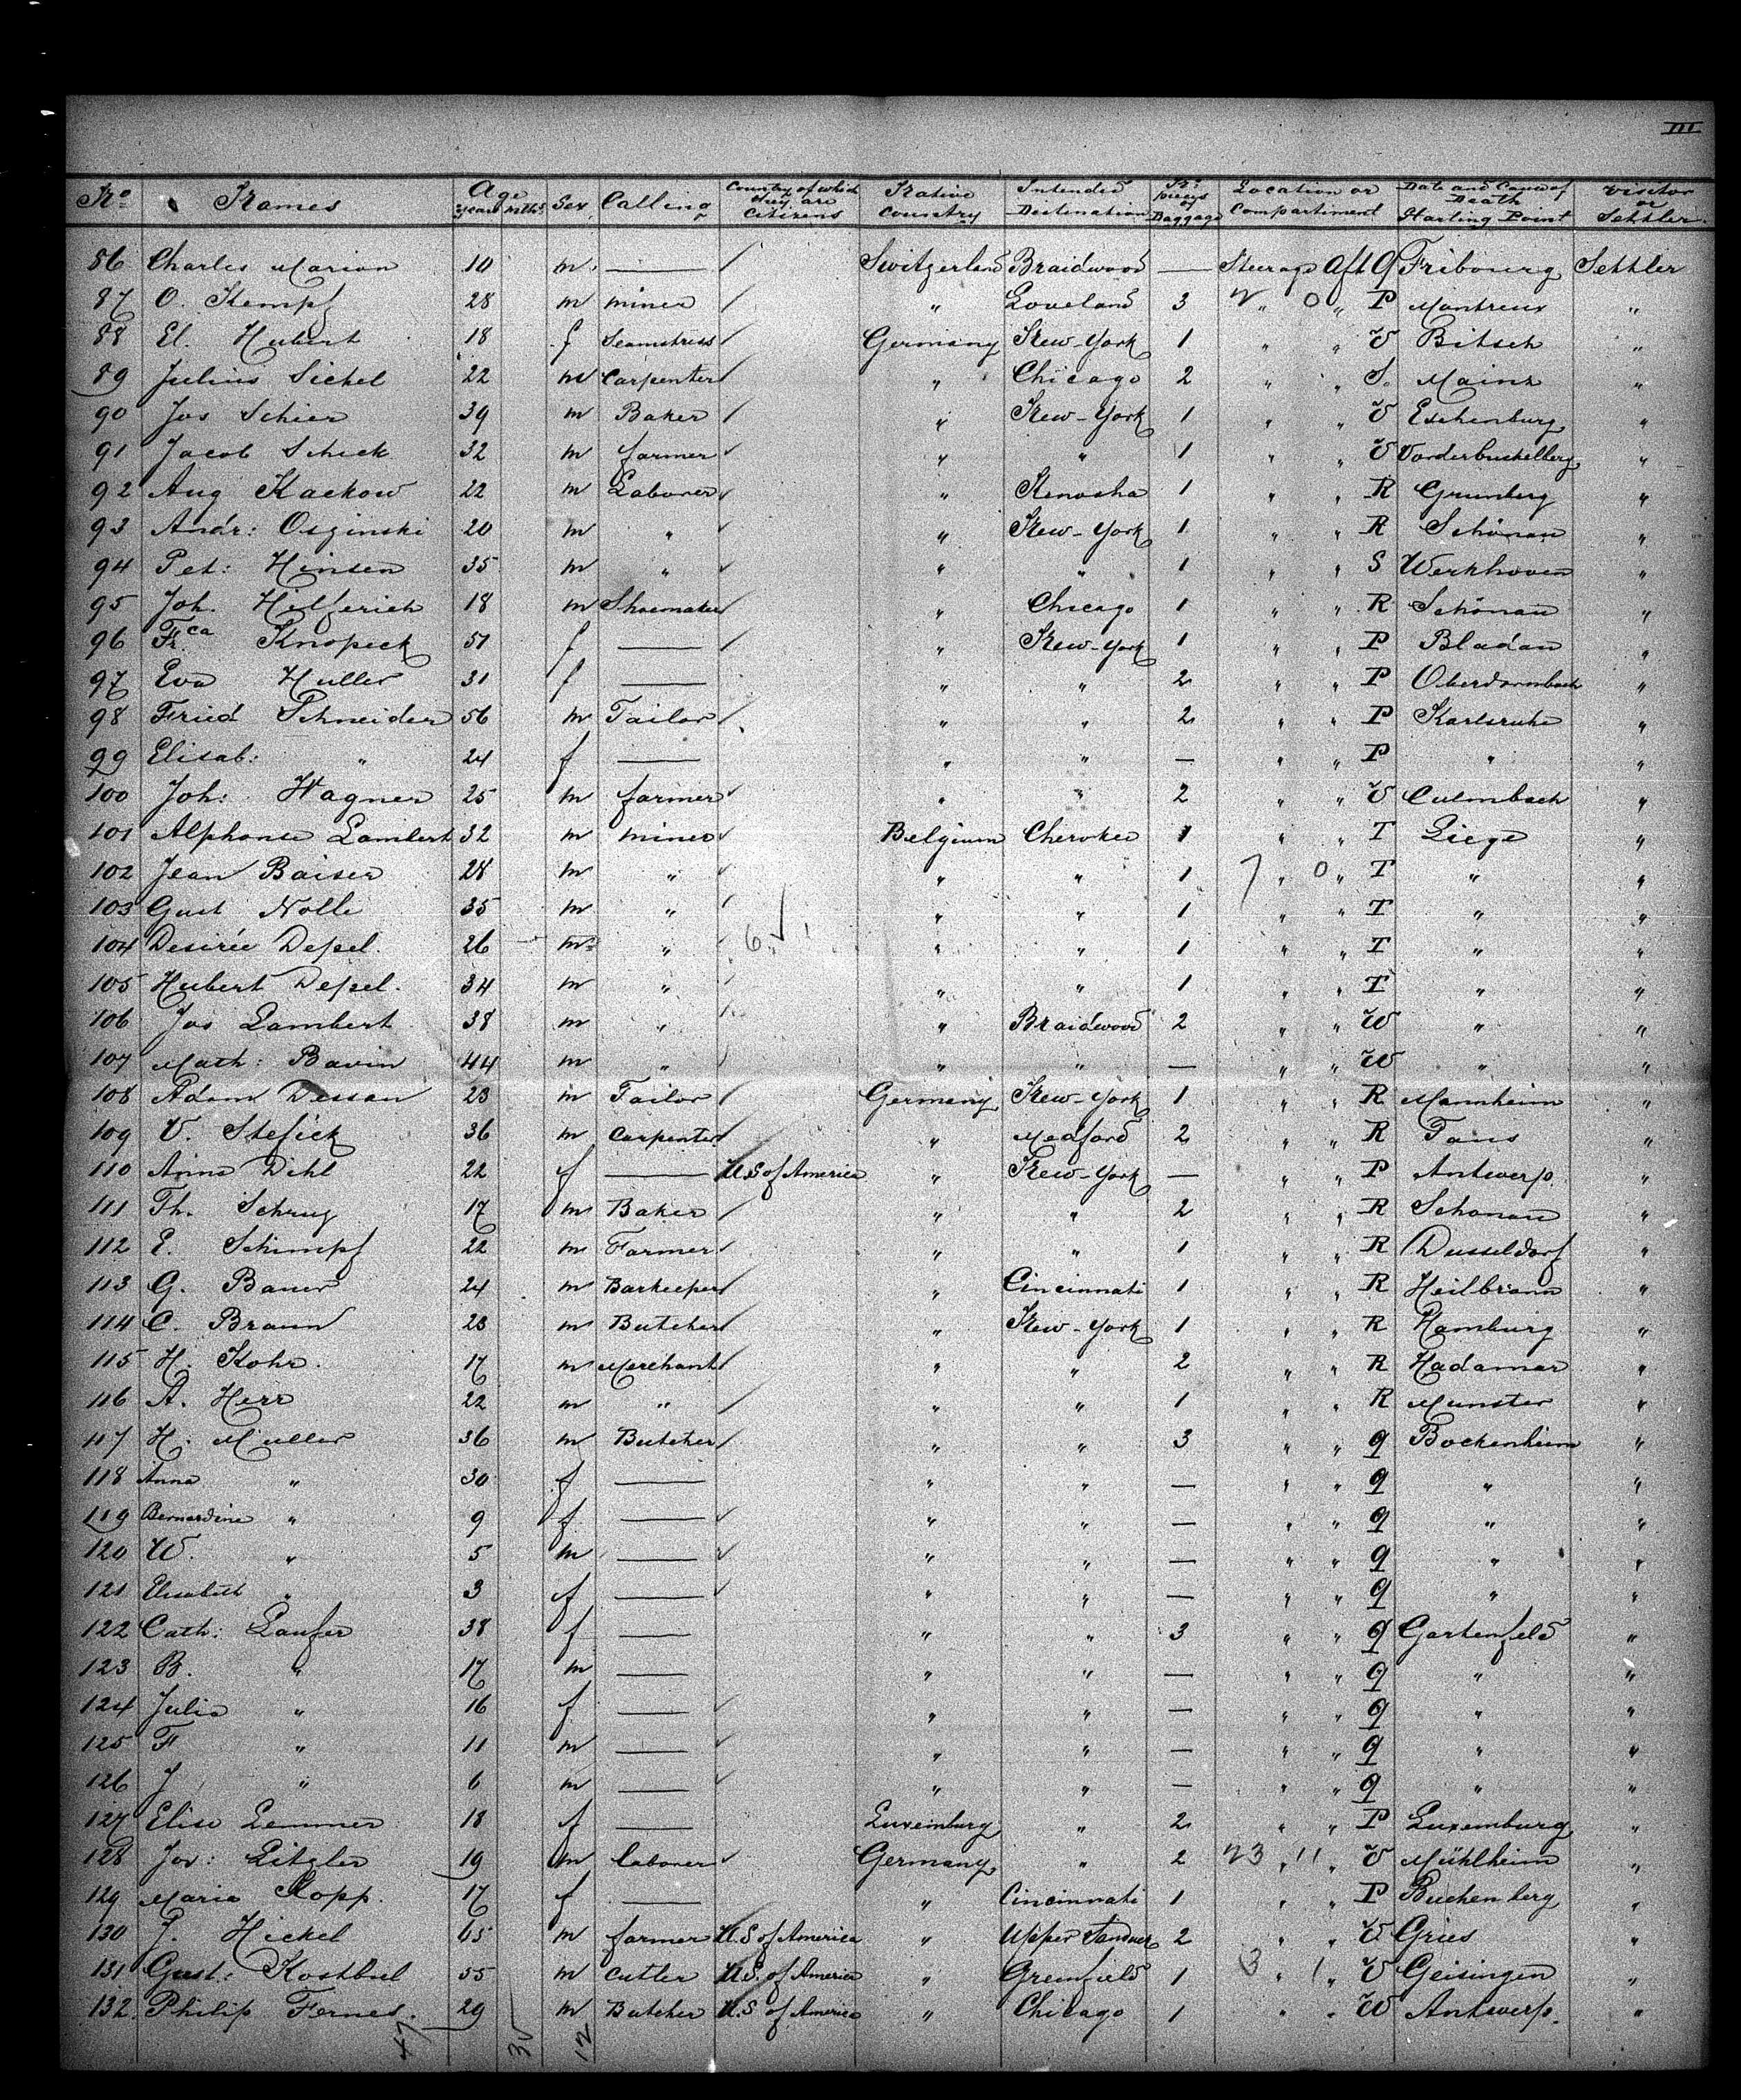 III
No Names Age years mths Sex Calling Country of which they are Citizens Native Country Intended Destination No pieces of Baggage Location or Compartiment Date and Cause of Death Starting Point Visitor or Settler
86 Charles Marion 10 m — / Switzerland Braidwood — Steerage Aft Q Fribourg Settler
87 O. Kempf 28 m miner / " Loveland 3 " 0 " P Montreux "
88 El. Hubert 18 f Seamstress / Germany New-York 1 " " V Bitsch "
89 Julius Sickel 22 m Carpenter / " Chicago 2 " " S. Mainz "
90 Jos Schier 39 m Baker / " New-York 1 " " V Eschenburg "
91 Jacob Schick 32 m farmer " " 1 " " V Vorderbuchelberg "
92 Aug Kackow 22 m Laborer " Kenosha 1 " " R Grunberg "
93 Andr: Osginski 20 m " " New-York 1 " " R Schönau "
94 Pet: Hinsen 35 m " " " 1 " " S Werkhoven "
95 Joh. Hilferich 18 m Shoemaker " Chicago 1 " " R Schönau "
96 Frca Knopeck 51 f — / " New-York 1 " " P Bladan "
97 Eva Huller 31 f — " " 2 " " P Oberdormbach "
98 Fried Schneider 56 m Tailor / " " 2 " " P Karlsruhe "
99 Elisab: " 24 f — " " — " " P " "
100 Joh: Wagner 25 m farmer " " 2 " " V Culmbach "
101 Alphonse Lambert 32 m miner Belgium Cherokee 1 " " T Liege "
102 Jean Baiser 28 m " " " 1 7 " 0 " T " "
103 Gust Nolle 35 m " " " 1 " " T " "
104 Desirée Depel. 26 m " 6 √ " " 1 " " T " "
105 Hubert Depel. 34 m " " " 1 " " T " "
106 Jos Lambert 38 m " " Braidwood 2 " " W " "
107 Math: Bavin 44 m " " " — " " W " "
108 Adam Dessau 23 m Tailor / Germany New-York 1 " " R Mannheim "
109 V. Stefick 36 m Carpenter / " Meaford 2 " " R Taus "
110 Anna Dihl 22 f — U.S of America " New-York — " " P Antwerp. "
111 Th. Schrug 17 m Baker / " " 2 " " R Schonau "
112 E. Schimpf 22 m Farmer / " " 1 " " R Dusseldorf "
113 G. Bauer 24 m Barkeeper / " Cincinnati 1 " " R Heilbronn "
114 C. Braun 23 m Butcher / " New-York 1 " " R Hamburg "
115 H. Kohr. 17 m Merchant / " " 2 " " R Hadamar "
116 A. Herr 22 m " / " " 1 " " R Munster "
117 H. Muller 36 m Butcher / " " 3 " " q Bockenheim "
118 Anna " 30 f — " " — " " q " "
119 Bernardine " 9 f — " " — " " q " "
120 W. " 5 m — " " — " " q " "
121 Elisabeth " 3 f — " " — " " q " "
122 Cath: Laufer 38 f — " " 3 " " q Gartenfeld "
123 B. " 17 m — " " — " " q " "
124 Julia " 16 f — " " — " " q " "
125 F " 11 m — " " — " " q " "
126 J " 6 m — " " — " " q " "
127 Elise Lemmer 18 f — Luxemburg " 2 " " P Luxemburg "
128 Jos: Litzler 19 m laborer Germany " 2 23 " 11 " V Mühlheim "
129 Maria Kopp. 17 f — " Cincinnati 1 " " P Buchenberg "
130 J. Hickel 65 m farmer U.S of America " Upper 2 " " V Gries "
131 Gust: Kostbul 55 m Cutler U.S. of America " Greenfield 1 3 " 1 " V Geisingen "
132 Philip Fernes. 29 m Butcher U.S of America " Chicago 1 " " W Antwerp. "
47 35 12